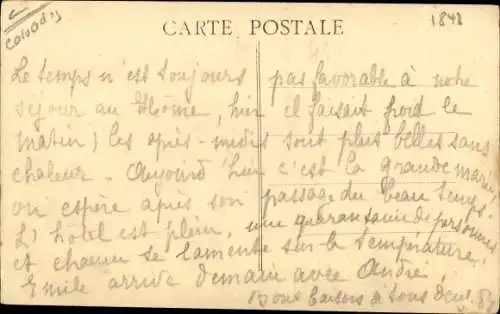 Calvados
CARTE POSTALE
1848
Le temps n'est toujours pas favorable à notre
séjour au Hôme, hier il faisait froid le
matin, les après-midis sont plus belles sans
chaleur - Aujourd'hui c'est la grande marée
on espère après son passage du beau temps.
L'hôtel est plein, une quarantaine de personnes
et chacun se lamente sur la température.
Emile arrive demain avec André.
Bons baisers à tous deux.